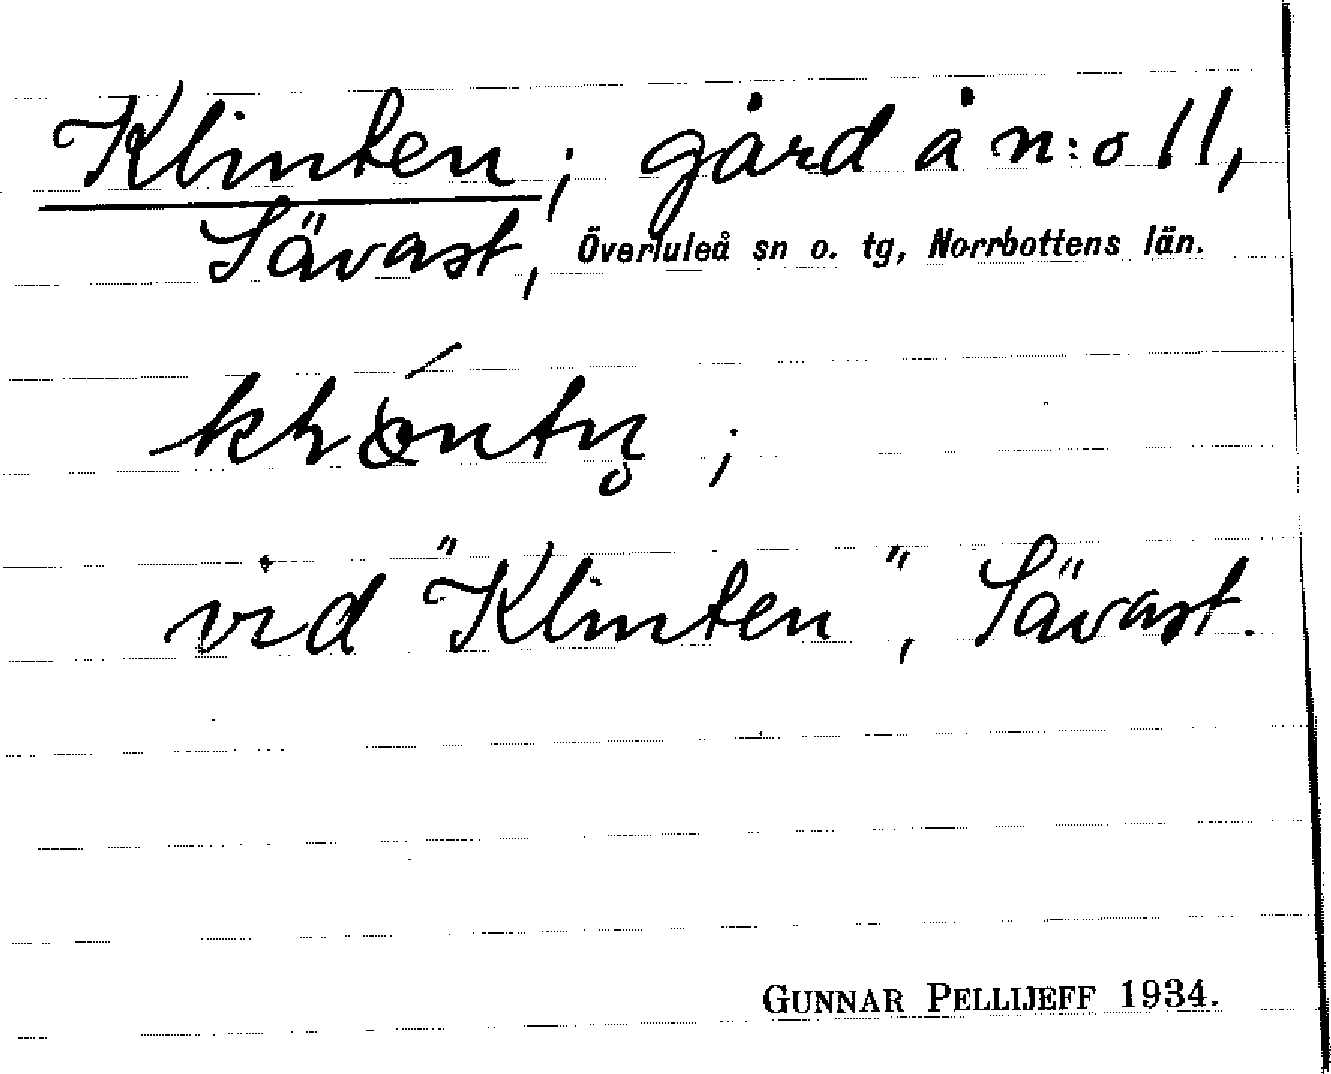 Klinten; gård å n:o 11,
Sävast, Överluleå sn o. tg, Norrbottens län.
vid "Klinten", Sävast.
GUNNAR PELLIJEFF 1934.